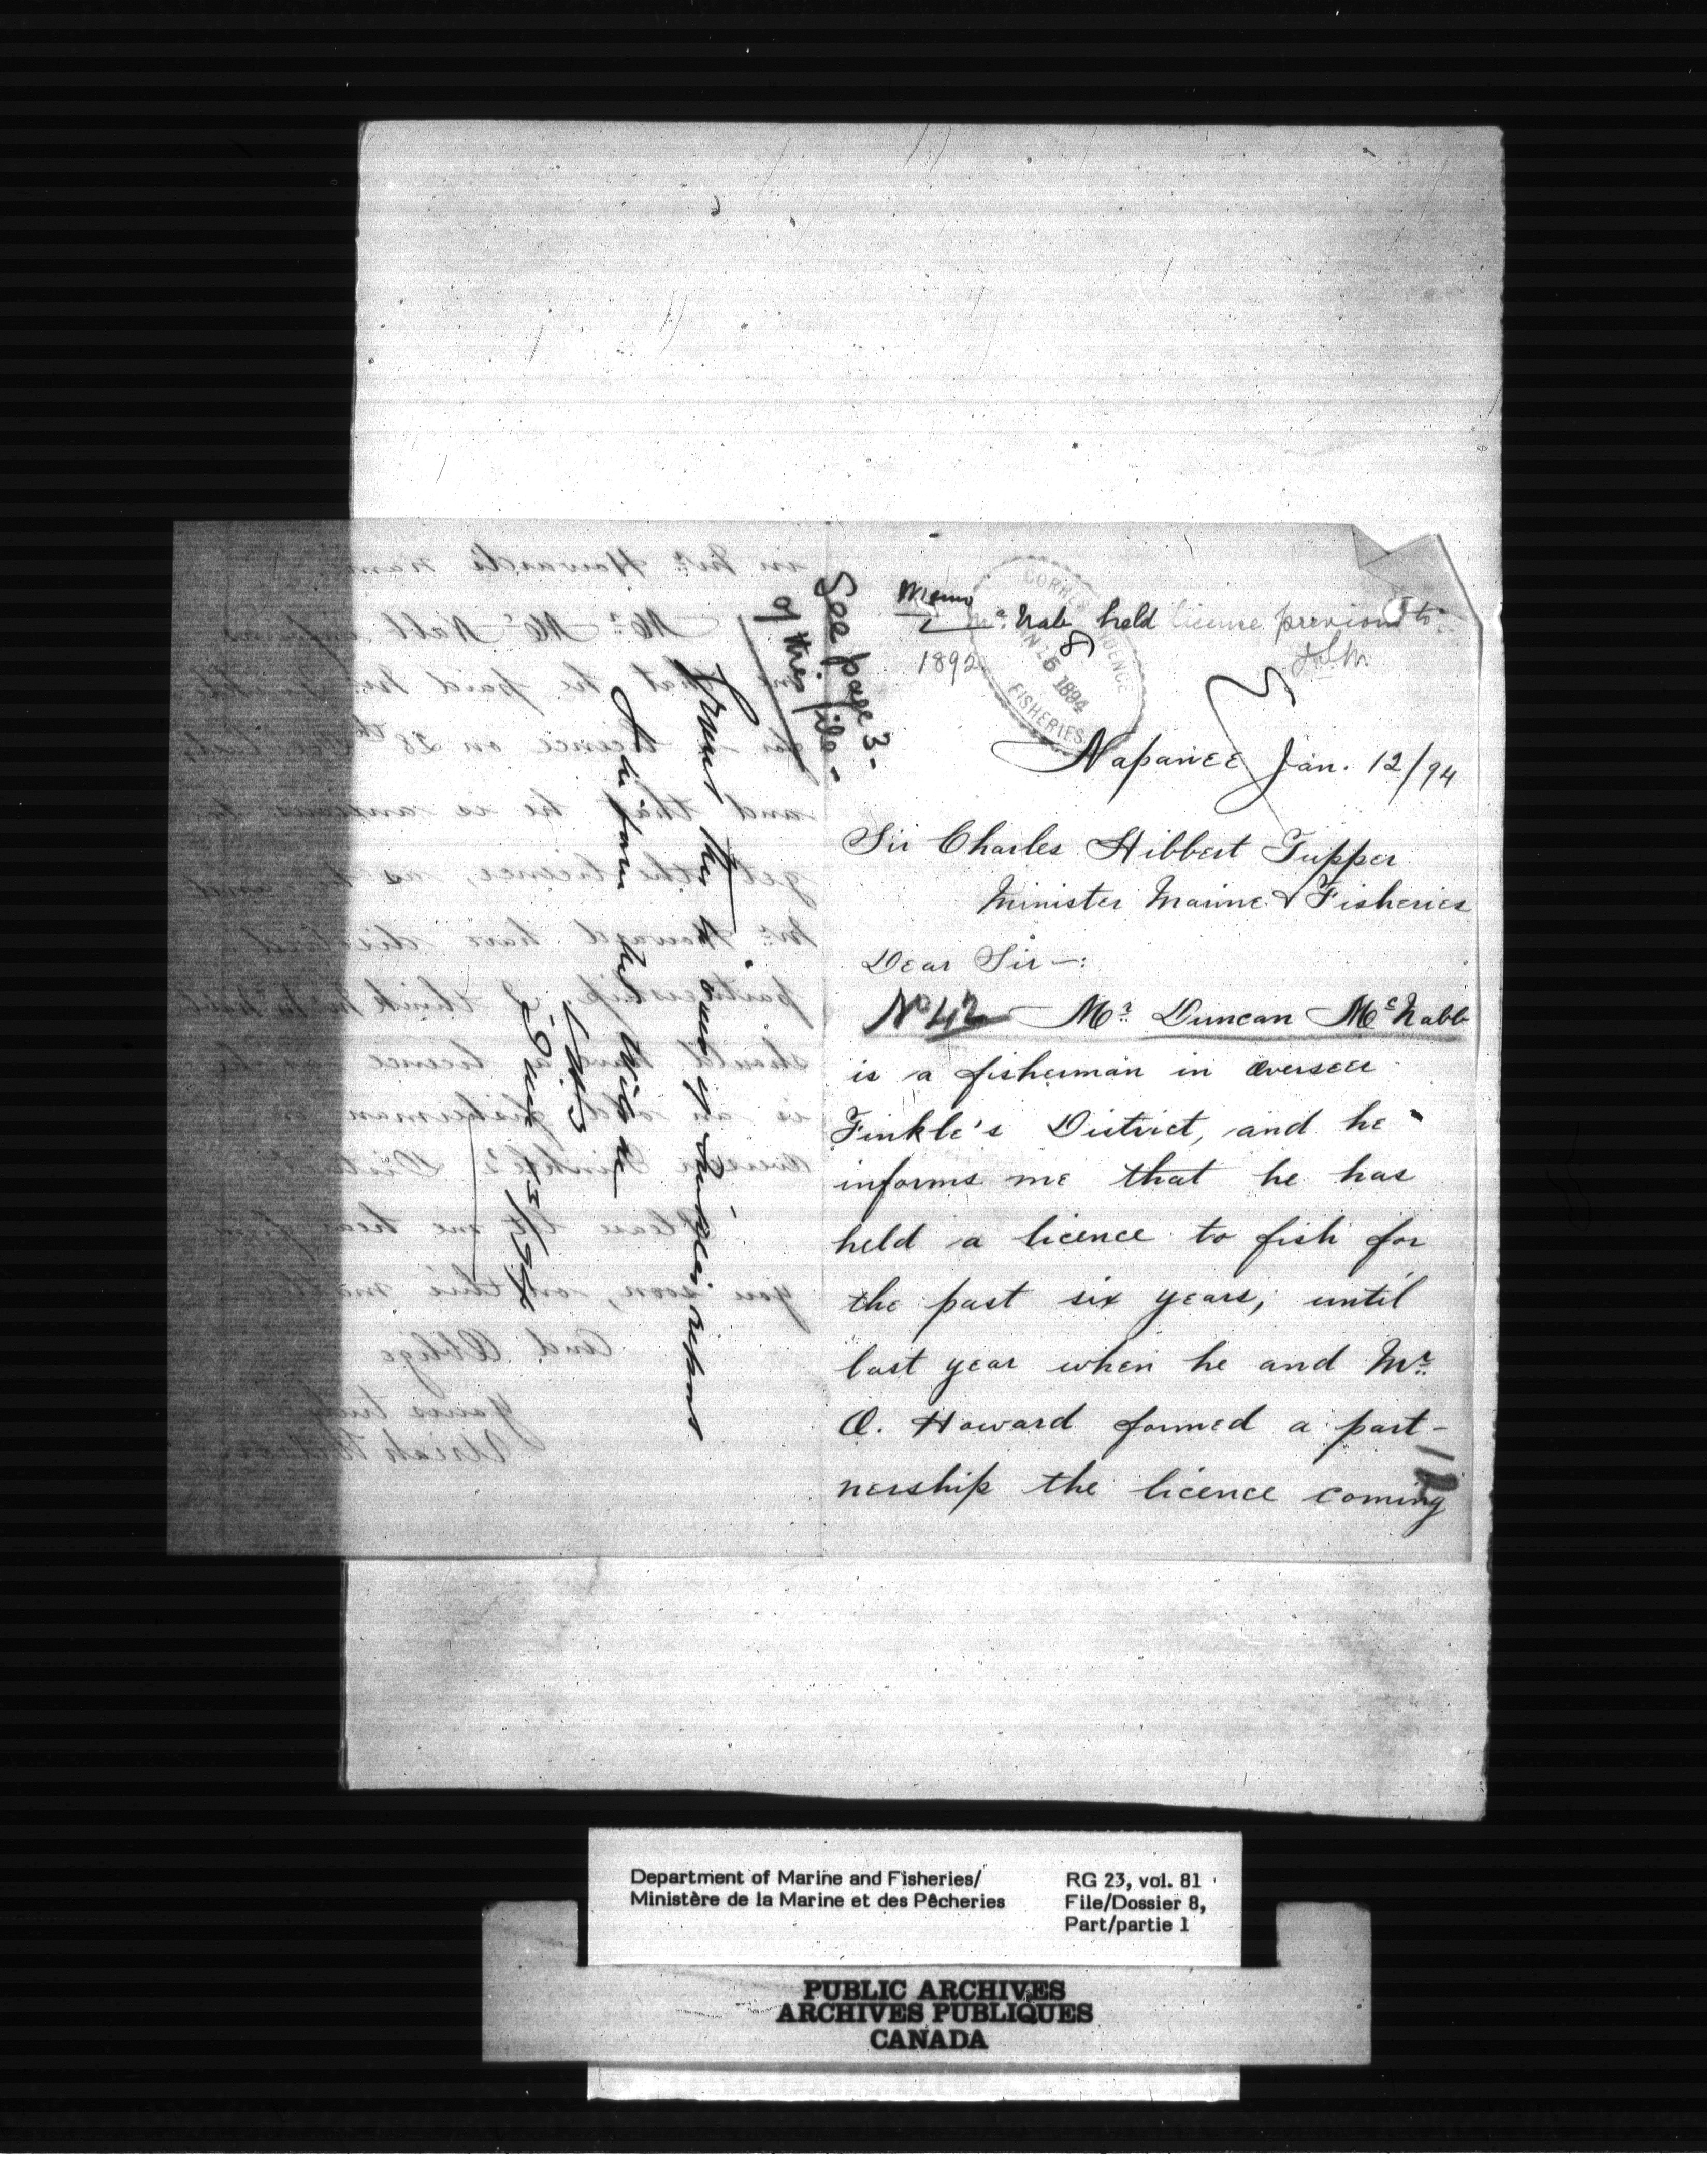 Memo
Mc.Nab held license previous to
1892
J.S.M.
CORRESPONDENCE
JAN 15 1894
FISHERIES
8
Napanee Jan. 12/94
Sir Charles Hibbert Tupper
Minister Marine & Fisheries
Dear Sir—:
No 42 — Mr. Duncan McNabb
is a fisherman in overseer
Finkle's District, and he
informs me that he has
held a licence to fish for
the past six years, until
last year when he and Mr.
O. Howard formed a part-
nership the licence coming
12
See page 3-
of this file-
Grant this
Inform
in Mr. Howard's name
Mr. McNabb informs
me that he paid Mr. Finkle
for a licence on 28th Dec last,
and that he is anxious to
get the licence, as he and
Mr. Howard have dissolved
partnership. I think Mr McNabb
should have a licence as he
is an old fisherman in
Overseer Finkle's District
Please let me hear from
you soon, on this matter
and Oblige
Yours truly
Uriah Wilson
Department of Marine and Fisheries/
Ministère de la Marine et des Pêcheries
RG 23, vol. 81
File/Dossier 8,
Part/partie 1
PUBLIC ARCHIVES
ARCHIVES PUBLIQUES
CANADA